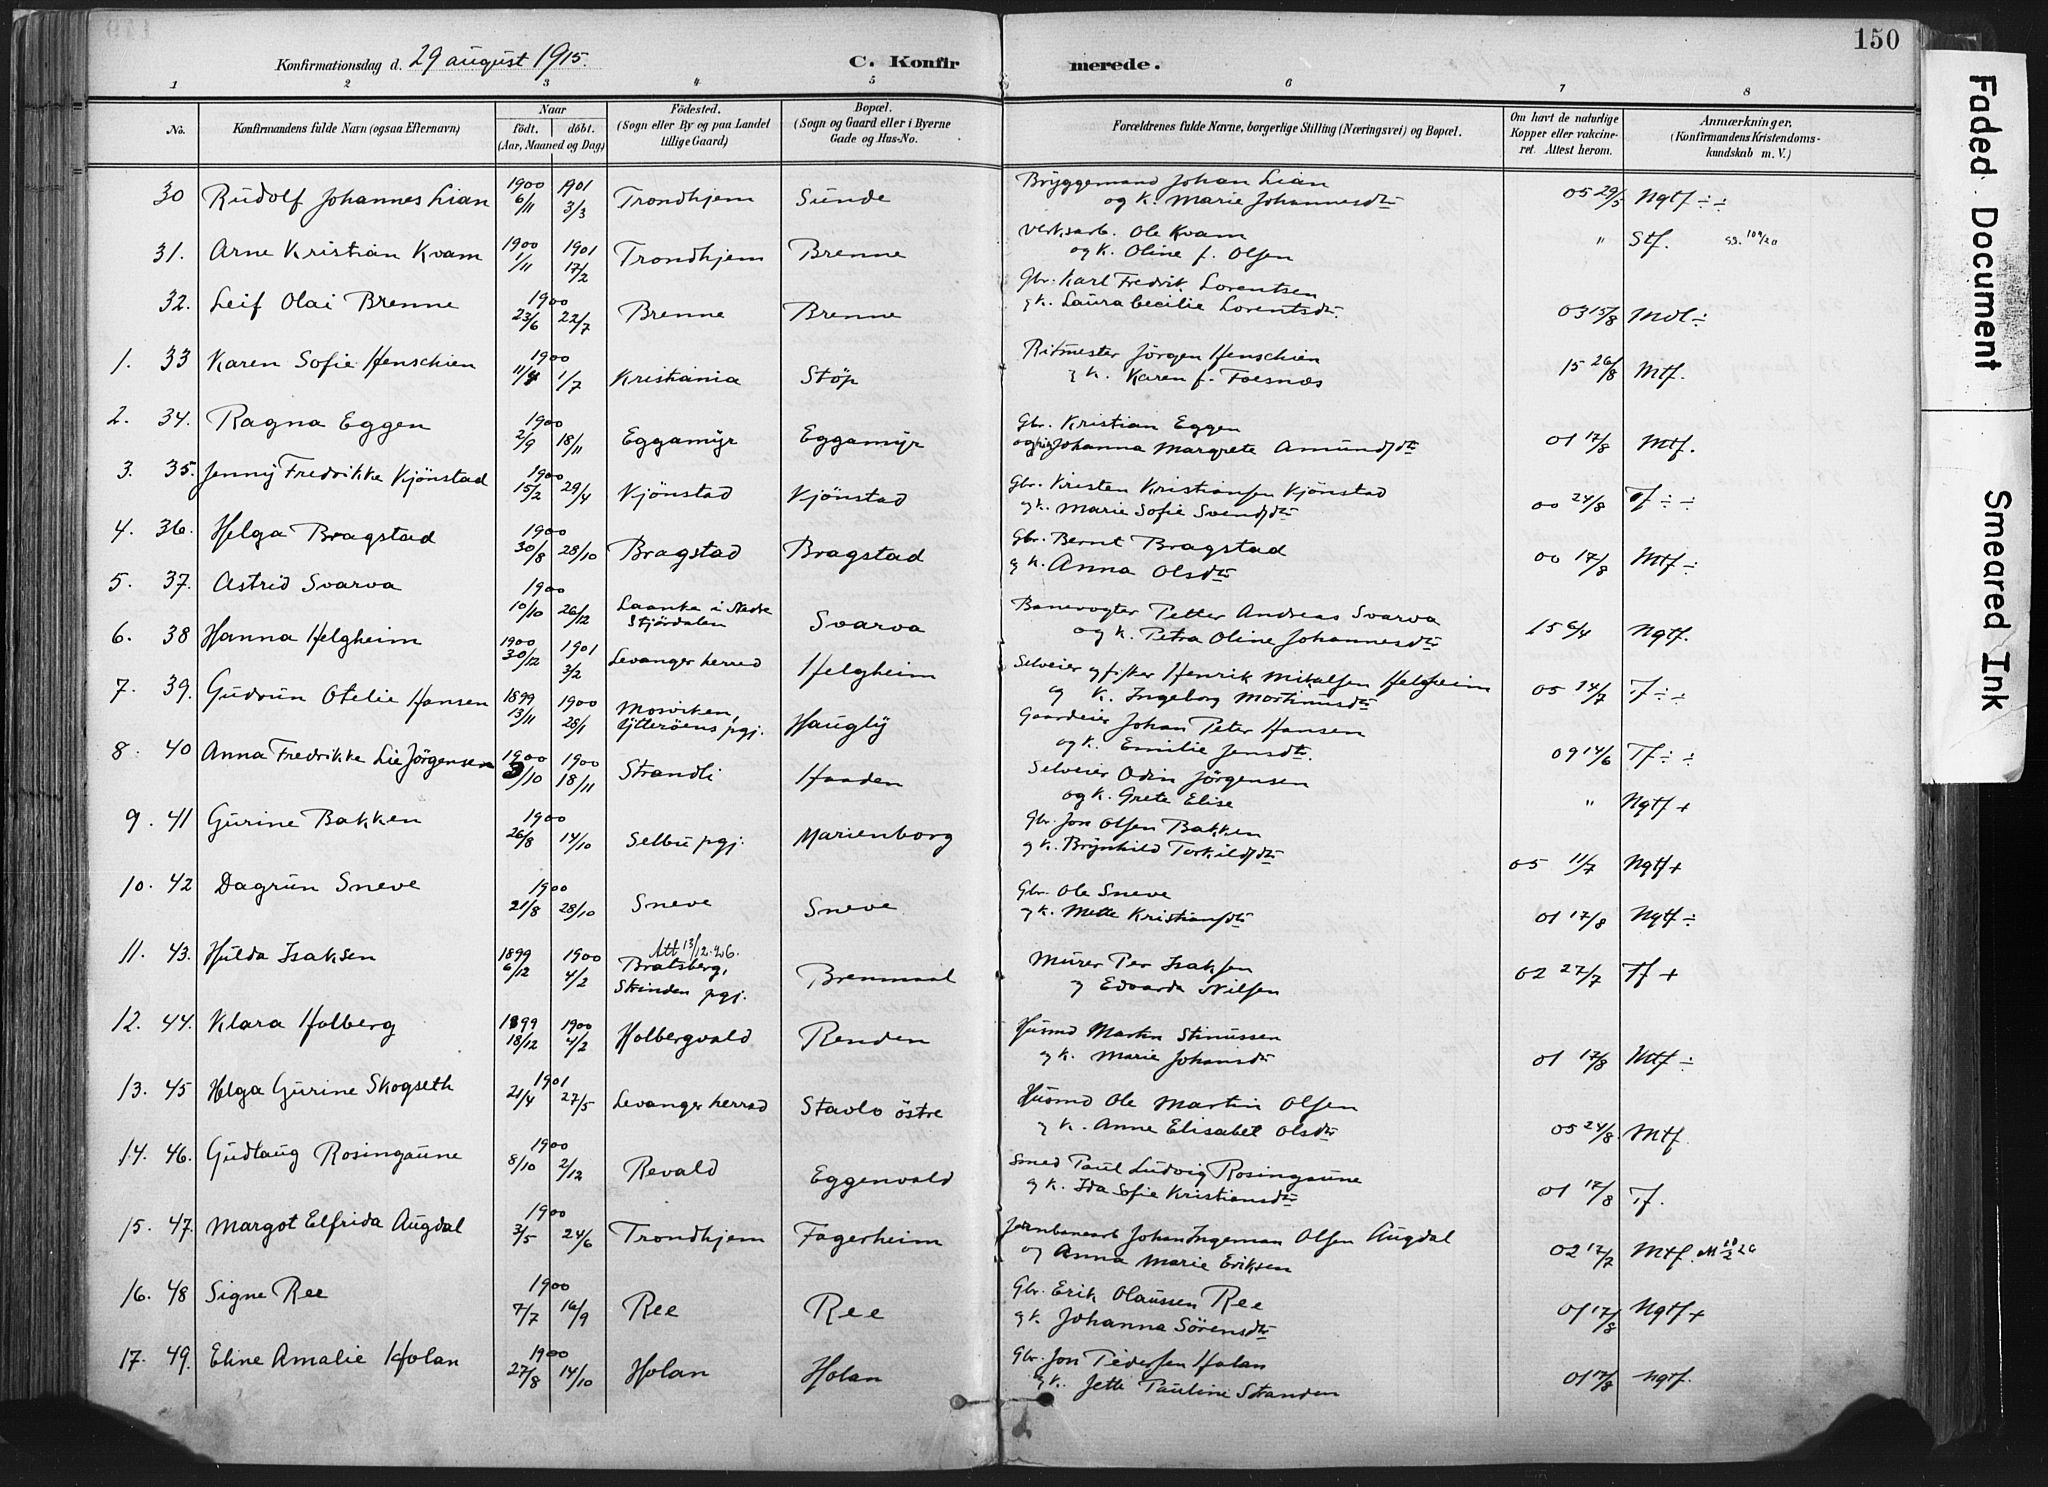 150
Konfirmationsdag d. 29 august 1915.
C. Konfirmerede.
1 2 3 4 5 6 7 8
No.
Konfirmandens fulde Navn (ogsaa Efternavn)
Naar
födt. döbt.
(Aar, Maaned og Dag)
Födested.
(Sogn eller By og paa Landet
tillige Gaard)
Bopæl.
(Sogn og Gaard eller i Byerne
Gade og Hus-No.
Forældrenes fulde Navne, borgerlige Stilling (Næringsvei) og Bopæl.
Om havt de naturlige
Kopper eller vakcine-
ret. Attest herom.
Anmærkninger.
(Konfirmandens Kristendoms-
kundskab m. V.)
30 Rudolf Johannes Lian 1900 6/11 1901 3/3 Trondhjem Sunde Bryggemand Johan Lian
og K. Marie Johannesdtr 05 29/5 Ngtf ÷÷
31. Arne Kristian Kvam 1900 1/11 1901 17/2 Trondhjem Brenne Verksarb. Ole Kvam
og K. Oline f. Olsen " Stf.
32. Leif Olai Brenne 1900 23/6 22/7 Brenne Brenne Gbr. Karl Fredrik Lorentsen
og K. Laura Cecilie Lorentsdtr. 03 15/8 Mdl ÷
1. 33 Karen Sofie Henschien 1900 11/4 1/7 Kristiania Stöp Ritmester Jörgen Henschien
og K. Karen f. Foesnæs 15 26/8 Mtf.
2. 34. Ragna Eggen 1900 2/9 18/11 Eggamyr Eggamyr Gbr. Kristian Eggen
og Johanna Margrete Amundsdtr 01 17/8 Mtf.
3. 35. Jenny Fredrikke Kjönstad 1900 15/2 29/4 Kjönstad Kjönstad Gbr. Kristen Kristiansen Kjönstad
og K. Marie Sofie Svendsdtr 00 24/8 Tf ÷÷
4. 36. Helga Bragstad 1900 30/8 28/10 Bragstad Bragstad Gbr. Bernt Bragstad
og K. Anna Olsdtr 00 17/8 Mtf ÷
5. 37. Astrid Svarva 1900 10/10 26/12 Laanke i Nedre
Stjördalen Svarva Banevogter Petter Andreas Svarva
og K. Petra Oline Johannesdtr 15 6/4 Ngtf.
6. 38 Hanna Helgheim 1900 30/12 1901 3/2 Levanger herred Helgheim Selveier og fisker Henrik Mikalsen Helgheim
og K. Ingeborg Martinusdtr 05 14/7 Tf ÷÷
7. 39. Gudrun Otelie Hansen 1899 13/11 1900 28/1 Mosviken,
Ytteröens pgj. Haugly Gaardeier Johan Peter Hansen
og K. Emilie Jensdtr. 09 14/6 Tf ÷÷
8. 40 Anna Fredrikke Lie Jörgensen 1900 3/10 1900 18/11 Strandli Haaden Selveier Odin Jörgensen
og K. Grete Elise " Ngtf +
9. 41 Gurine Bakken 1900 26/8 14/10 Selbu pgj. Marienborg Gbr. Jon Olsen Bakken
og K. Brynhild Torkildsdtr 05 11/7 Ngtf +
10. 42 Dagrun Sneve 1900 21/8 28/10 Sneve Sneve Gbr. Ole Sneve
og K. Mette Kristiansdtr 01 17/8 Ngtf ÷
11. 43. Hulda Isaksen 1899 6/12 1900 4/2 Att 13/12.26.
Bratsberg,
Strinden pgj. Bremnaal Murer Per Isaksen
og Edvarda Nilsen 02 27/7 Tf +
12. 44. Klara Holberg 1899 18/12 1900 4/2 Holbergvald Renden Husmd Martin Stinussen
og K. Marie Johansdtr 01 17/8 Mtf ÷
13. 45 Helga Gurine Skogseth 1901 21/4 27/5 Levanger herred Stavlo östre Husmd Ole Martin Olsen
og K. Anne Elisabet Olsdtr 05 24/8. Mtf.
14. 46. Gudlaug Rosingaune 1900 8/10 2/12 Revald Eggenvald Smed Paul Ludvig Rosingaune
og K. Ida Sofie Kristiansdtr 01 17/8 Tf.
15. 47. Margot Elfrida Augdal 1900 3/5 24/6 Trondhjem Fagerheim Jernbanearb Johan Ingeman Olsen Augdal
og Anna Marie Eriksen 02 17/7 Mtf.
16. 48 Signe Ree 1900 7/7 16/9 Ree Ree Gbr. Erik Olaussen Ree
og K. Johanna Sörensdtr 01 17/8 Ngtf +
17. 49. Eline Amalie Holan 1900 27/8 14/10 Holan Holan Gbr. Jon Pedersen Holan
og K. Jette Pauline Stranden 01 17/8 Ngtf.
Faded Document
Smeared Ink